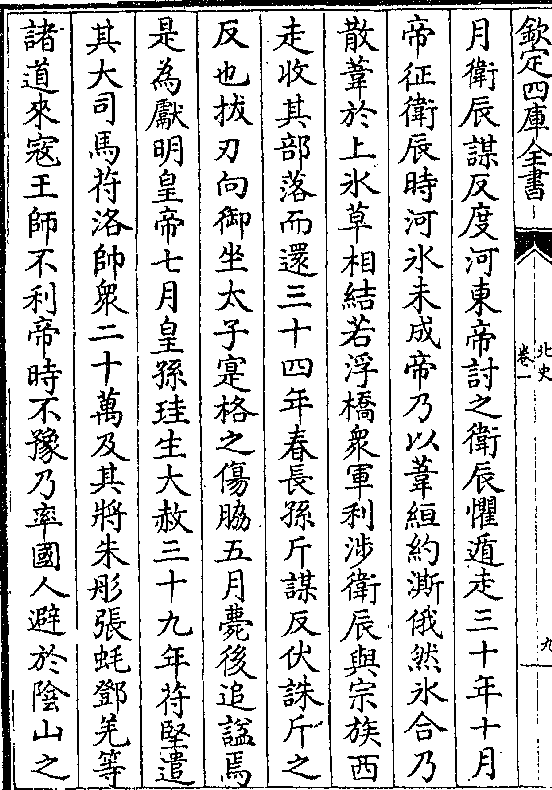 欽定四庫全書
北史
卷一
九
月衛辰謀反度河東帝討之衛辰懼遁走三十年十月
帝征衛辰時河氷未成帝乃以葦絙約澌俄然氷合乃
散葦於上氷草相結若浮橋衆軍利涉衛辰與宗族西
走收其部落而還三十四年春長孫斤謀反伏誅斤之
反也拔刃向御坐太子寔格之傷脇五月薨後追諡焉
是為獻明皇帝七月皇孫珪生大赦三十九年苻堅遣
其大司馬苻洛帥衆二十萬及其將朱彤張蚝鄧羌等
諸道來寇王師不利帝時不豫乃率國人避於陰山之